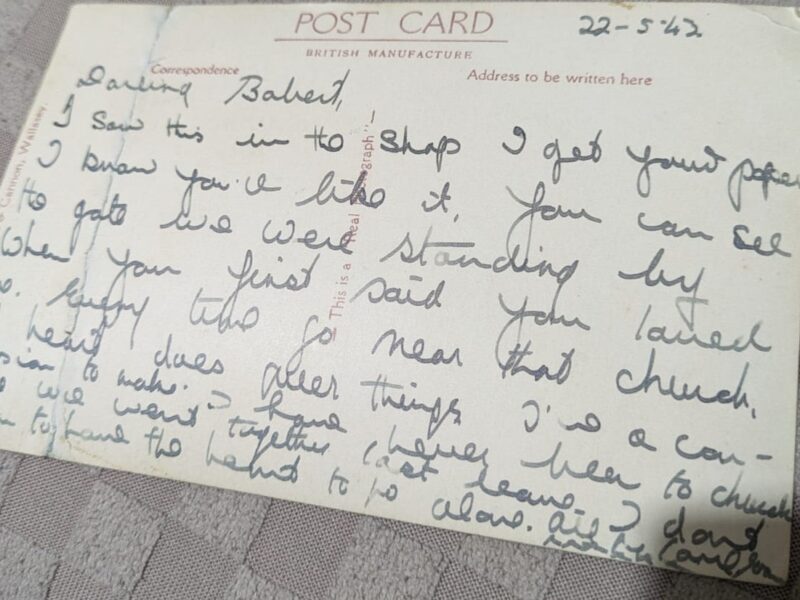 POST CARD
22-5-42
BRITISH MANUFACTURE
Correspondence
Address to be written here
Cannon, Wallasey.
This is a Real Photograph"
Darling
I saw this in the shop I get your paper
I know you'd like it, you can see
the gate we were standing by
When you first said you loved
Every time go near that church,
heart does queer things I've a con-
sion to make. I have never been to church
we went together last leave I don't
to have the heart to go alone. All